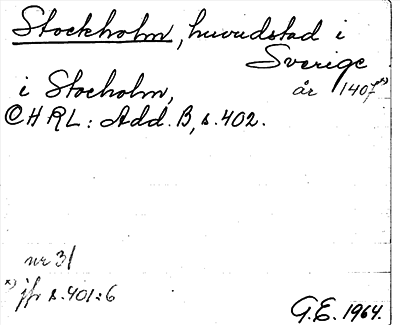 Stockholm, huvudstad i
Sverige
i Stocholm, år 1407*)
©HRL: Add. B, s. 402.
nr 31
*) jfr s. 401:6
G.E. 1964.